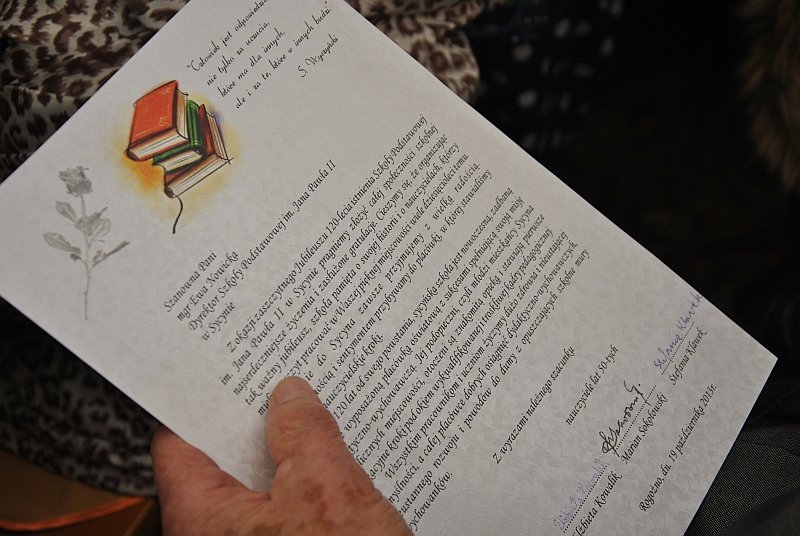 "Człowiek jest odpowiedzialny
nie tylko za uczucia,
które ma dla innych,
ale i za te, które w innych budzi."
S. Wyszyński
Szanowna Pani
mgr Ewa Nowicka
Dyrektor Szkoły Podstawowej im. Jana Pawła II
w Sycynie
Z okazji zaszczytnego Jubileuszu 120-lecia istnienia Szkoły Podstawowej
im. Jana Pawła II w Sycynie pragniemy złożyć całej społeczności szkolnej
najserdeczniejsze życzenia i zasłużone gratulacje. Cieszymy się, że organizując
tak ważny jubileusz, szkoła pamięta o swojej historii i o nauczycielach, którzy
pracować w Waszej pięknej miejscowości wiele dziesięcioleci temu.
do Sycyna zawsze przyjmujemy z wielką radością,
i sentymentem przybywamy do placówki, w której stawialiśmy
nauczycielskie kroki.
120 lat od swego powstania, sycyńska szkoła jest nowoczesną, zadbaną
wyposażoną placówką oświatową z sukcesem spełniającą swoją misję
Jej podopieczni, czyli młodzi mieszkańcy Sycyna
miejscowości, otoczeni są znakomitą opieką i stawiają pierwsze
kroki pod okiem wykwalifikowanej i troskliwej kadry pedagogicznej.
Wszystkim pracownikom i uczniom życzymy dużo zdrowia i nieustającej
a całej placówce dobrych osiągnięć dydaktyczno-wychowawczych,
rozwoju i powodów do dumy z opuszczających szkolne mury
wychowanków.
Z wyrazami należnego szacunku
nauczyciele lat 50-tych
Elżbieta Kowalik
Marian Sokołowski
Stefania Kławek
Rogoźno, dn. 19 października 2013r.